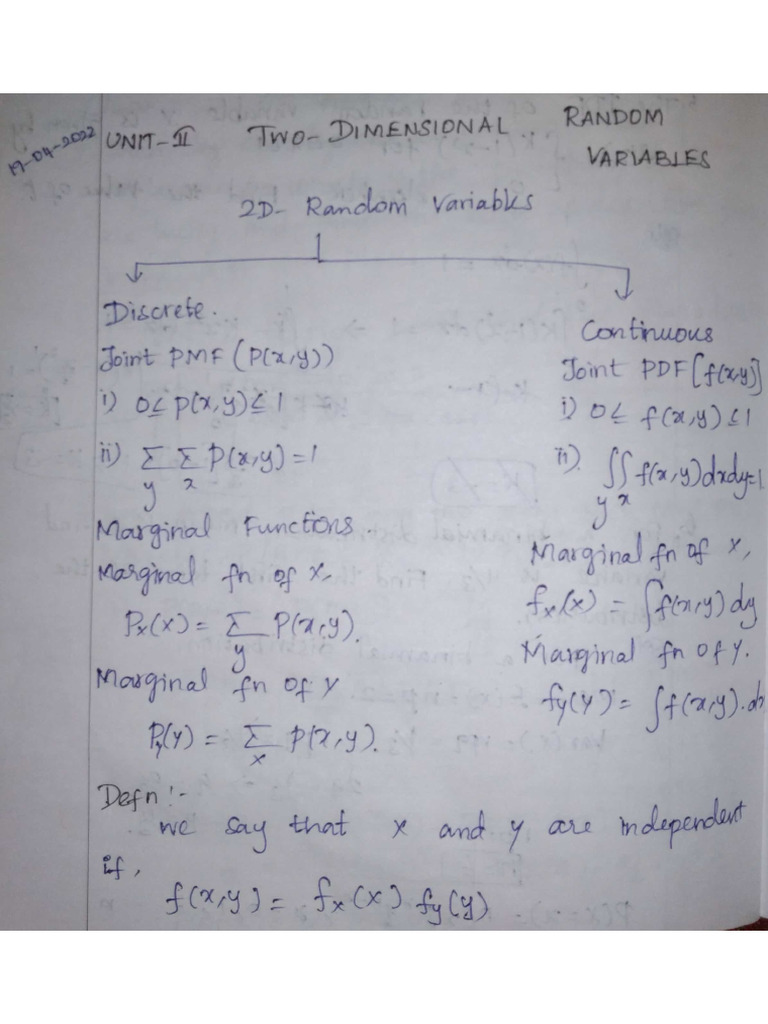 19-04-2022
UNIT-II TWO-DIMENSIONAL RANDOM
VARIABLES
2D- Random Variables
Discrete.
Joint PMF (P(x,y))
i) 0≤ P(x,y) ≤ 1
ii) Σ Σ P(x,y) = 1
y x
Marginal Functions.
Marginal fn of X,
Px(x) = Σ P(x,y).
y
Marginal fn of Y
Py(y) = Σ P(x,y).
x
Continuous
Joint PDF [f(x,y)]
i) 0≤ f(x,y) ≤ 1
ii) ∫∫ f(x,y) dxdy = 1
y x
Marginal fn of X,
fx(x) = ∫ f(x,y) dy
Marginal fn of Y.
fy(y) = ∫ f(x,y). dx
Defn :-
we say that x and y are independent
if,
f(x,y) = fx(x). fy(y)